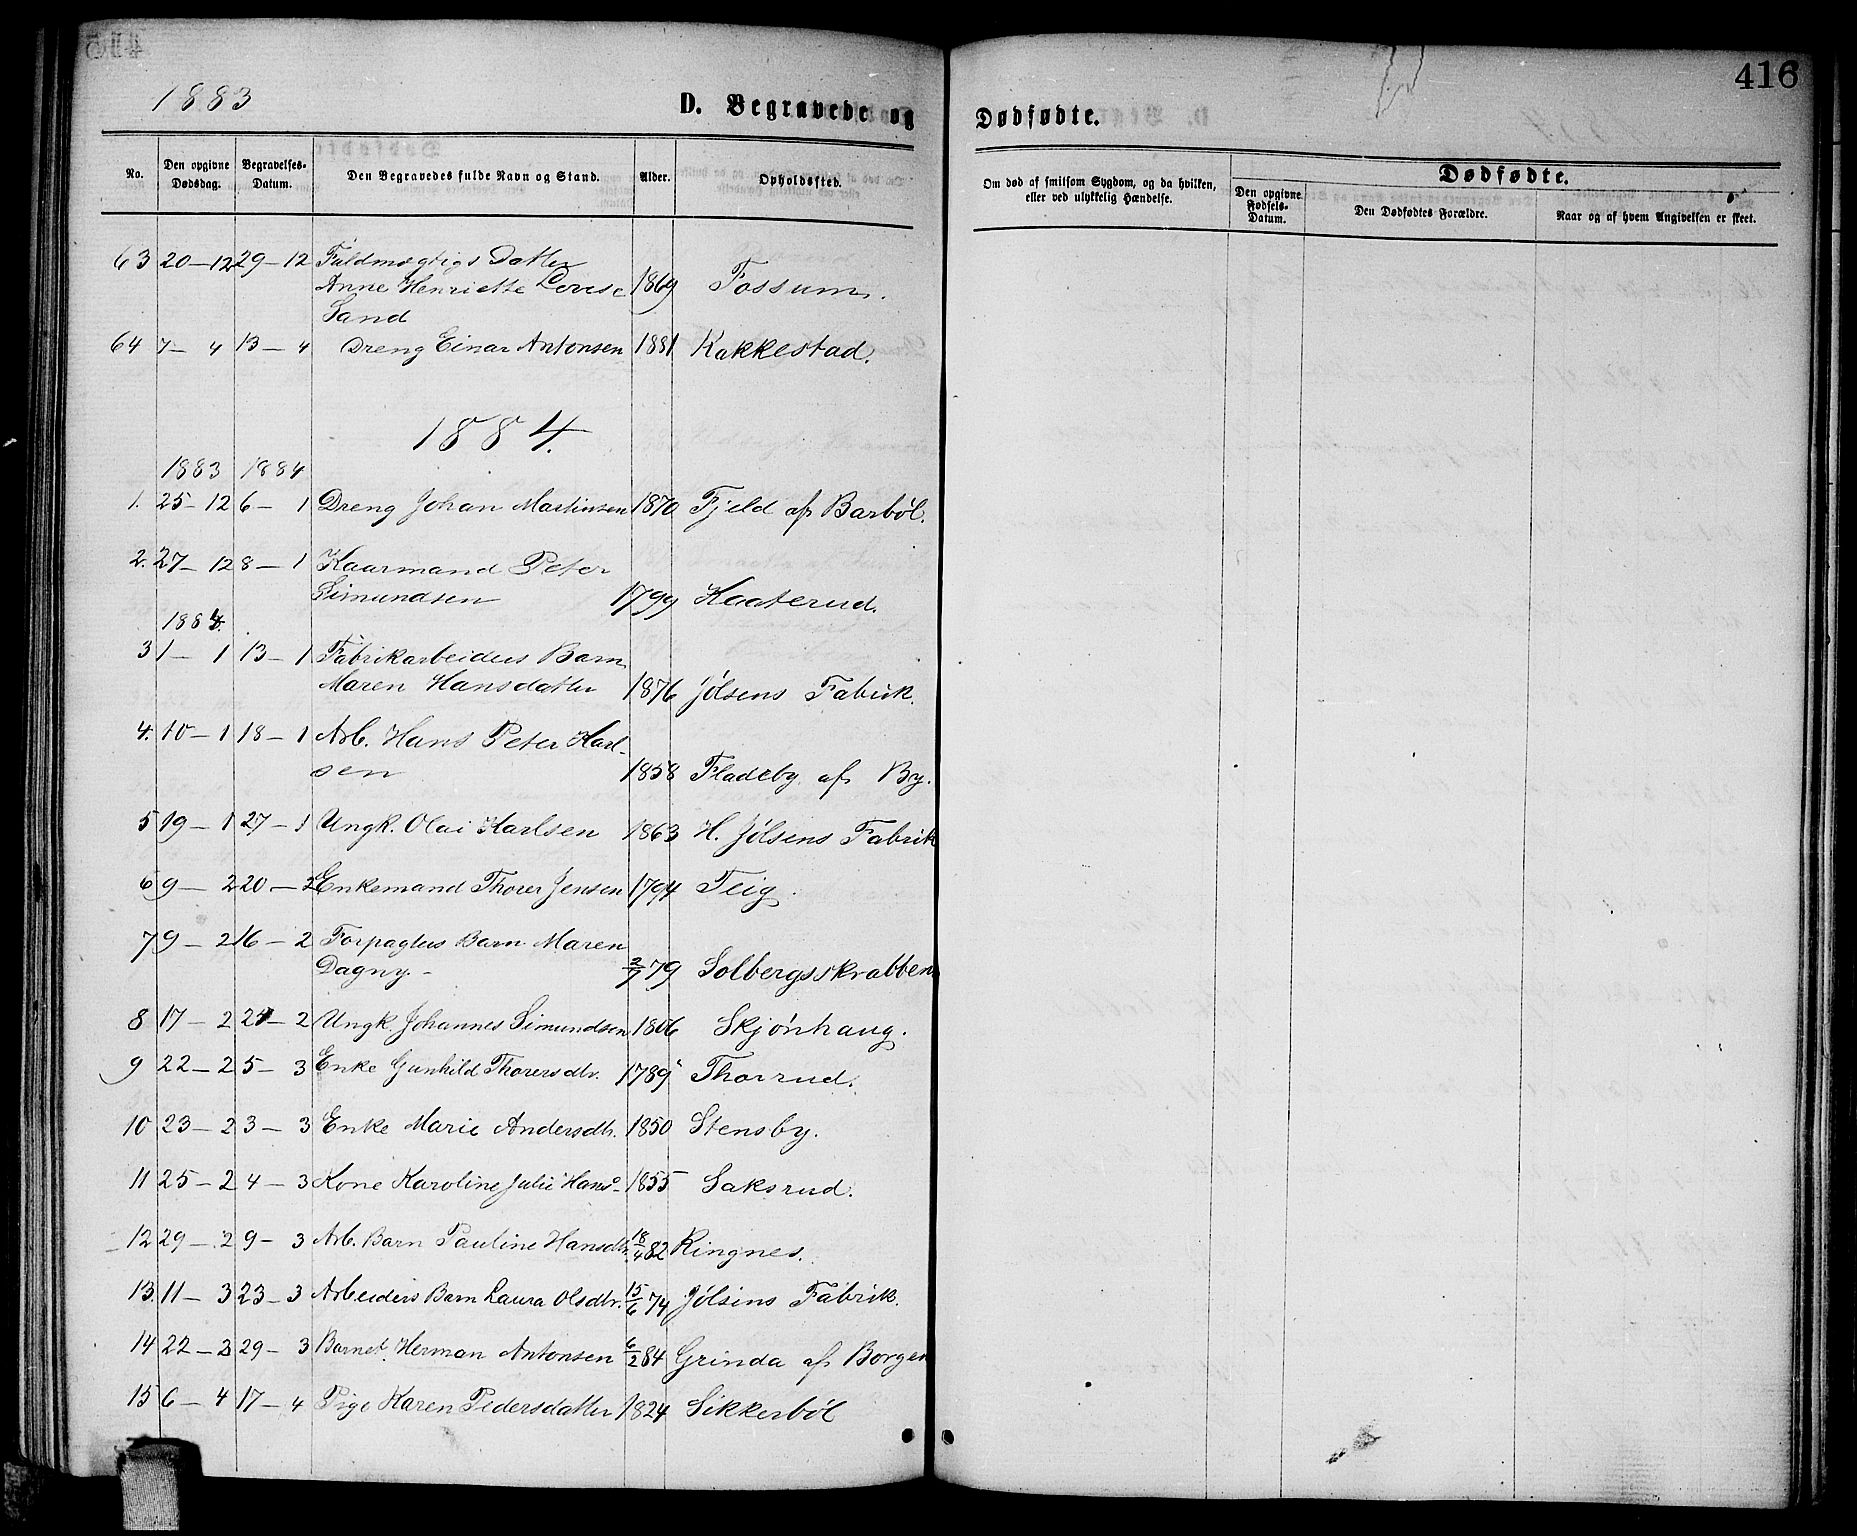 416
1883
D. Begravede og Dødfødte.
No.
Den opgivne Dødsdag.
Begravelses-Datum.
Den Begravedes fulde Navn og Stand.
Alder.
Opholdssted.
Om død af smitsom Sygdom, og da hvilken, eller ved ulykkelig Hændelse.
Dødfødte.
Den opgivne Fødsels-Datum.
Den Dødfødtes Forældre.
Naar og af hvem Angivelsen er skeet.
63 20-12 29-12 Fuldmægtigs Datter
Anne Henriette Lovise 1869 Fossum.
Sand
64 7-4 13-4 Dreng Einar Antonsen 1881 Kakkestad.
1884.
1883 1884
1. 25-12 6-1 Dreng Johan Martinsen 1870 Fjeld af Barbøl.
2. 27-12 8-1 Kaarmand Peter
Simundsen 1799 Kaaterud.
1884.
3 1-1 13-1 Fabrikarbeiders Barn
Maren Hansdatter 1876 Jølsens Fabrik.
4. 10-1 18-1 Arb. Hans Peter Karl-
sen 1858 Fladeby af By.
5 19-1 27-1 Ungk. Olai Karlsen 1863 H. Jølsens Fabrik
6 9-2 20-2 Enkemand Thorer Jensen 1794 Teig.
7 9-2 16-2 Forpagters Barn Maren
Dagny.- 2/7 79 Solbergsskrabben
8 17-2 24-2 Ungk. Johannes Simundsen 1806 Skjønhaug.
9 22-2 5-3 Enke Gunhild Thorersdtr. 1789 Thorrud.
10 23-2 3-3 Enke Marie Andersdtr. 1850 Stensby.
11 25-2 4-3 Kone Karoline Julie Hans- 1855 Saksrud.
12 29-2 9-3 Arb. Barn Pauline Hansdtr. 18/4 82 Ringnes.
13. 11-3 23-3 Arbeiders Barn Laura Olsdtr. 15/6 74 Jølsens Fabrik.
14 22-3 29-3 Barnet Herman Antonsen 6/2 84 Grinda af Borgen
15 6-4 17-4 Pige Karen Pedersdatter 1824 Sikkerbøl